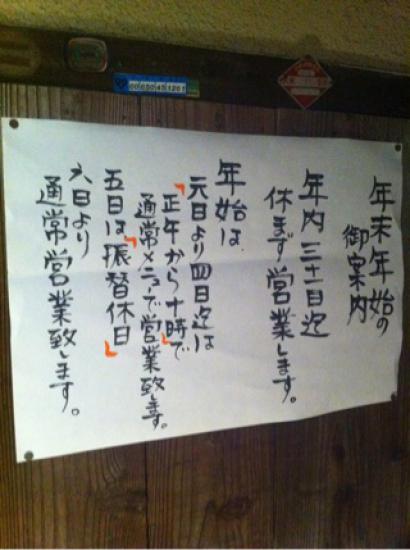 年末年始の
御案内
年内三十一日迄
休まず営業します。
年始は
元日より四日迄は
「正午から十時で」
通常メニューで営業致します。
五日は「振替休日」
六日より
通常営業致します。